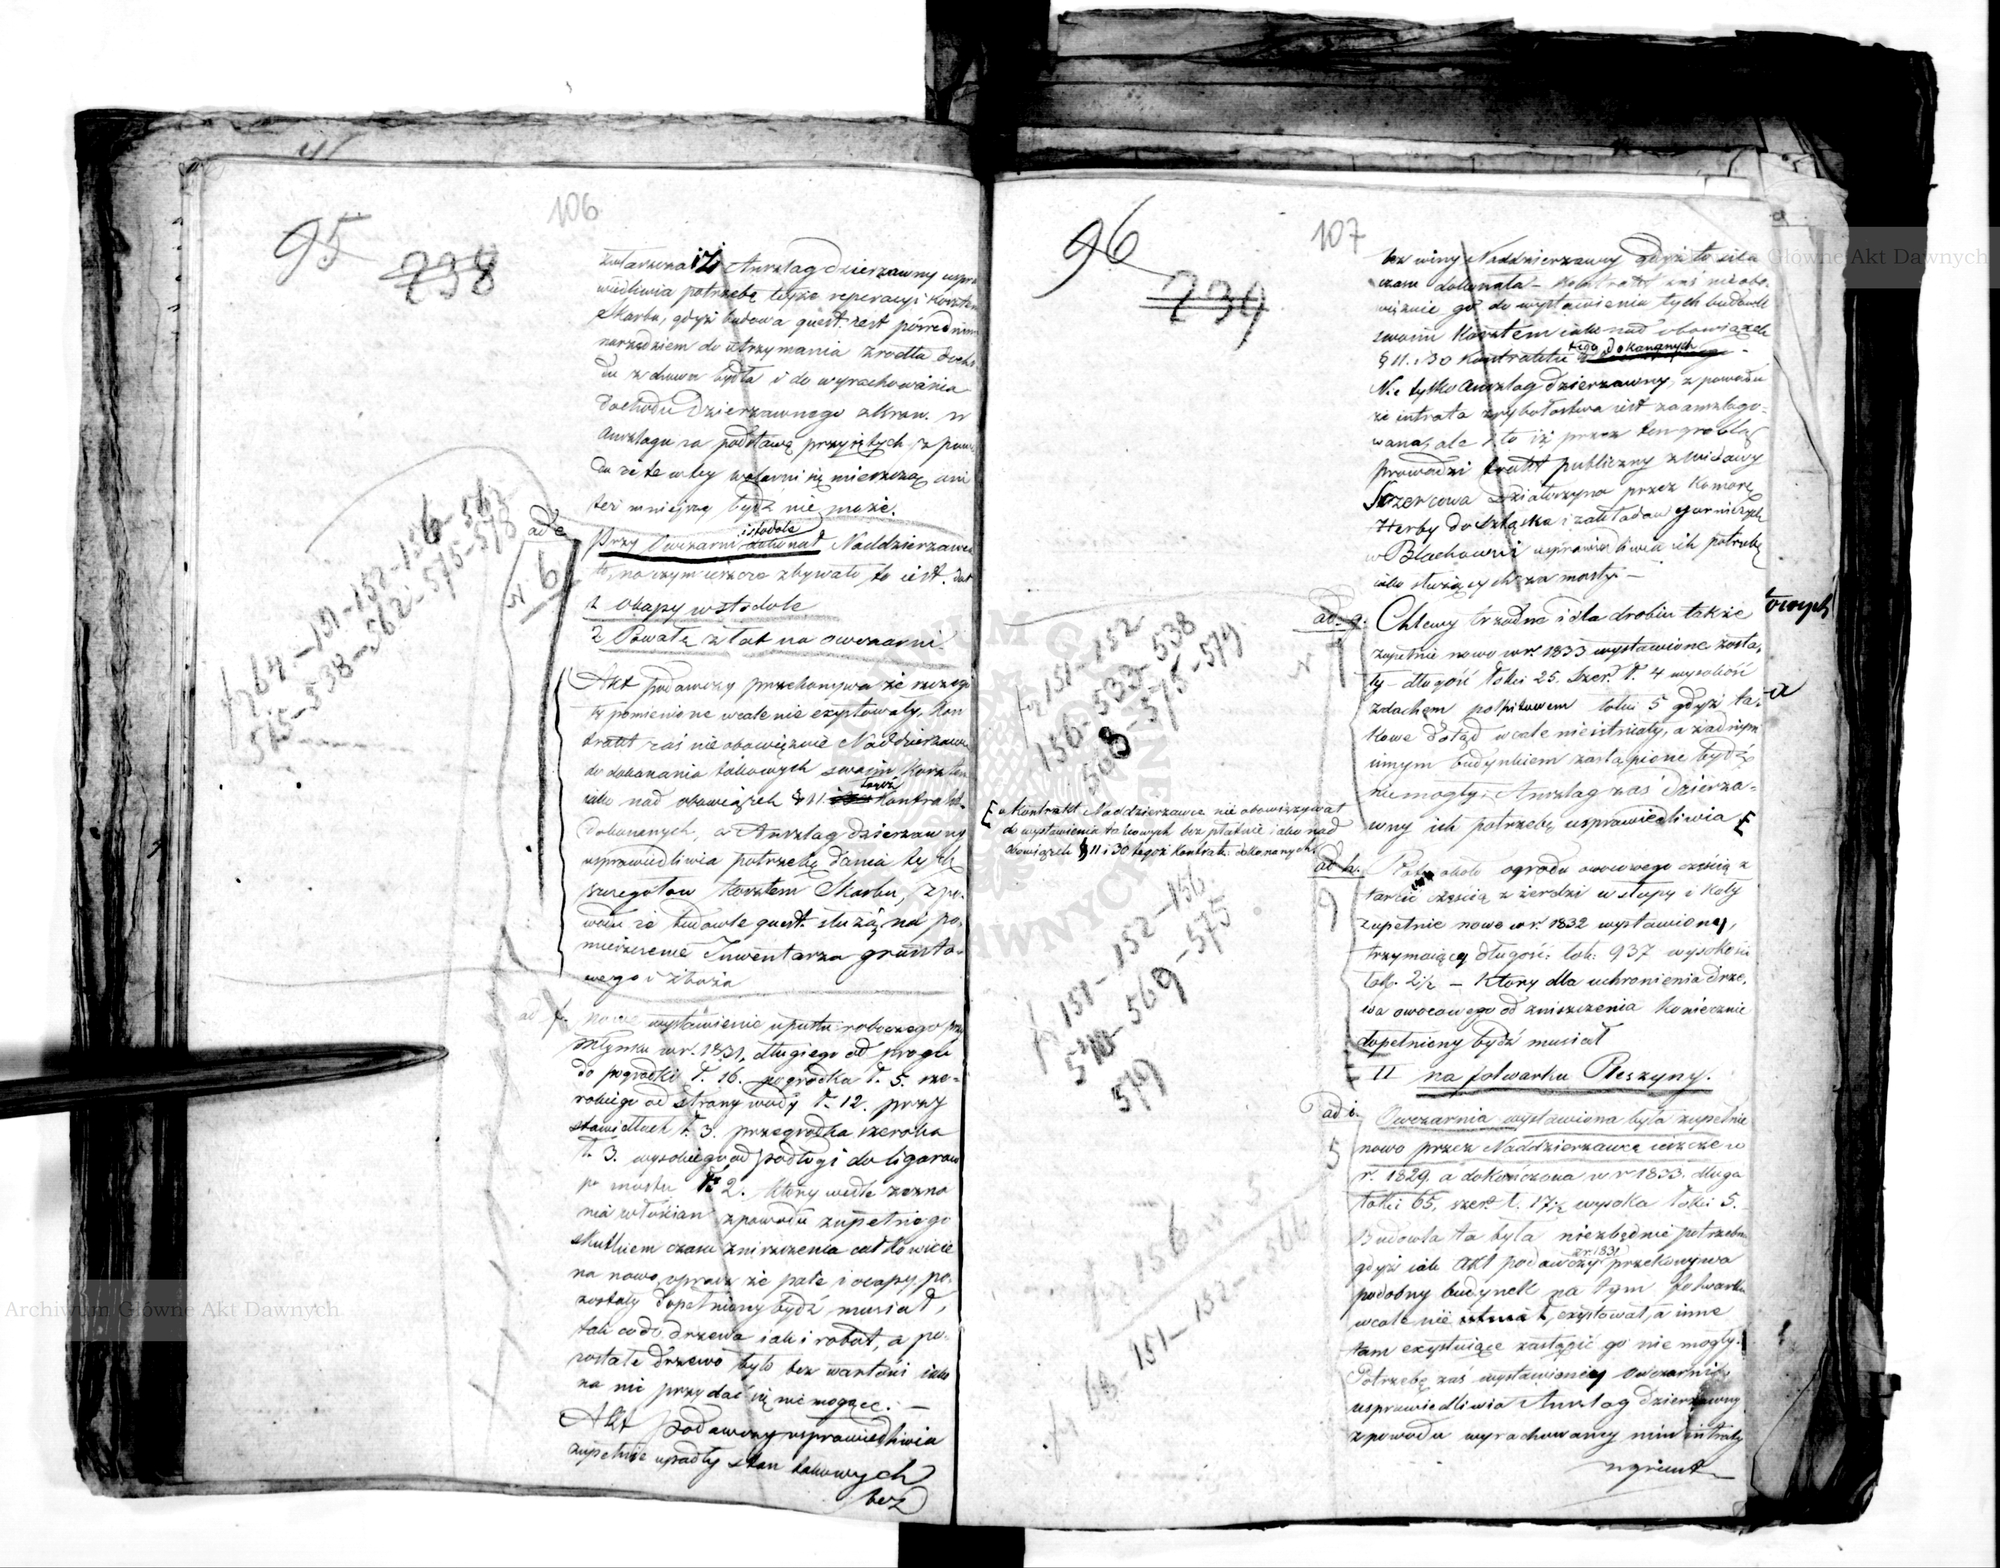 106
95
238
iż Anszlag dzierzawny uspra
wiedliwia potrzebę tejże reperacyi kosztem
Skarbu, gdyż budowa quest. jest pośrednim
narzędziem do utrzymania zrodła docho
du z chowu bydła i do wyrachowania
dochodu dzierzawnego w
Anszlagu za podstawę przyjętych, z powo
du że te w tey się mieszczą, ani
też mniejszą bydź nie może.
ad e
N 6
Przy Owczarni i stodole Naddzierzawca
to, na czym jeszcze zbywało, to iest. dał
1 okapy w stodole
2 Powałę z łat na owczarni.
Akt podawczy przekonywa że szczegó
ły pomienione wcale nie exystowały, Kon
trakt zaś nie obowięzuie Naddzierzawcę
do dokonania takowych swoim kosztem
iako nad obowiązek § 11. tegoż Kontraktu
dokonanych, a Anszlag dzierzawny
usprawiedliwia potrzebę dania tych
szczegołow kosztem Skarbu, z po-
wodu że budowle quest. służą na po-
mieszczenie Inwentarza grunto-
wego i zboża
fo 64-151-152-156-563
515-538-562-575-578
ad f.
nowe wystawienie upustu roboczego przy
młynku w r. 1831. długiego od progu
do pogrodki ł. 16. pogrodka ł. 5. sze-
rokiego od strony wody ł. 12. przy
stawidłach ł. 3. przegrodka szeroka
ł. 3. wysokiego od podłogi do ligarow
po mostu ł. 2. który wedle zezna
nia włościan z powodu zupełnego
skutkiem czasu zniszczenia całkowicie
na nowo, oprócz że pale i ocapy po-
zostały dopełniony bydź musiał,
tak co do drzewa iak i robot, a po-
zostałe drzewo było bez wartości iako
na nic przydać się nie mogące. —
Akt podawczy usprawiedliwia
zupełnie upadły stan takowych
bez
107
96
239
bez winy Naddzierzawcy
czasu dokonała – Kontrakt zaś nieobo-
więzuie go do wystawienia tych budowli
swoim kosztem iako nad obowiązek
§ 11. i 30 Kontraktu tego dokonanych
Nie tylko Anszlag dzierzawny, z powodu
że intrata z rybołostwa iest zaanszlago-
wana, ale i to iż przez ten groblą
prowadzi trakt publiczny z Widawy
Szczercowa Działoszyna przez Komorę
Herby do Szląska i zakładow gorniczych
w Blachowni usprawiedliwia ich potrzebę
iako służących za mosty. —
ad. g.
N 7
Chlewy trzodne i dla drobiu także
zupełnie nowo w r. 1833 wystawione zosta-
ły – długość łokci 25. szer. ł. 4 wysokość
z dachem połpitowem łokci 5 gdyż ta-
kowe dotąd wcale nieistniały, a żadnym
innym budynkiem zastąpione bydź
niemogły. Anszlag zaś dzierza-
wny ich potrzebę usprawiedliwia
fo 151-152
156-533-538
568-575-579
a Kontrakt Naddzierzawcę nie obowiązywał
do wystawienia takowych bez płatnie iako nad
obowiązek § 11 i 30 tegoż Kontrakt. dokonanych.
ad h.
9
około ogrodu owocowego częścią z
tarcic częścią z żerdzi w słupy i koły
zupełnie nowo w r. 1832 wystawiony,
trzymaiący długości łok. 937 wysokości
łok. 2½ – który dla uchronienia drze-
wa owocowego od zniszczenia koniecznie
dopełniony bydź musiał
fo 151-152-156
569-575
579
II na folwarku Pleszyny.
ad i.
5
Owczarnia wystawiona była zupełnie
nowo przez Naddzierzawcę ieszcze w
r. 1829. a dokończona w r 1833. długa
łokci 65. szer. ł. 17½ wysoka łokci 5.
Budowla ta była niezbędnie potrzebna
gdyż iak akt podawczy z r. 1831 przekonywa
podobny budynek na tym folwarku
wcale nie exystował, a inne
tam exystuiące zastąpić go nie mogły.
Potrzebę zaś wystawioney owczarni
usprawiedliwia Anszlag dzierzawny
z powodu wyrachowaney nim intraty
z grunt
fo 156
fo 64-151-152-566
Archiwum Główne Akt Dawnych
Główne Akt Dawnych